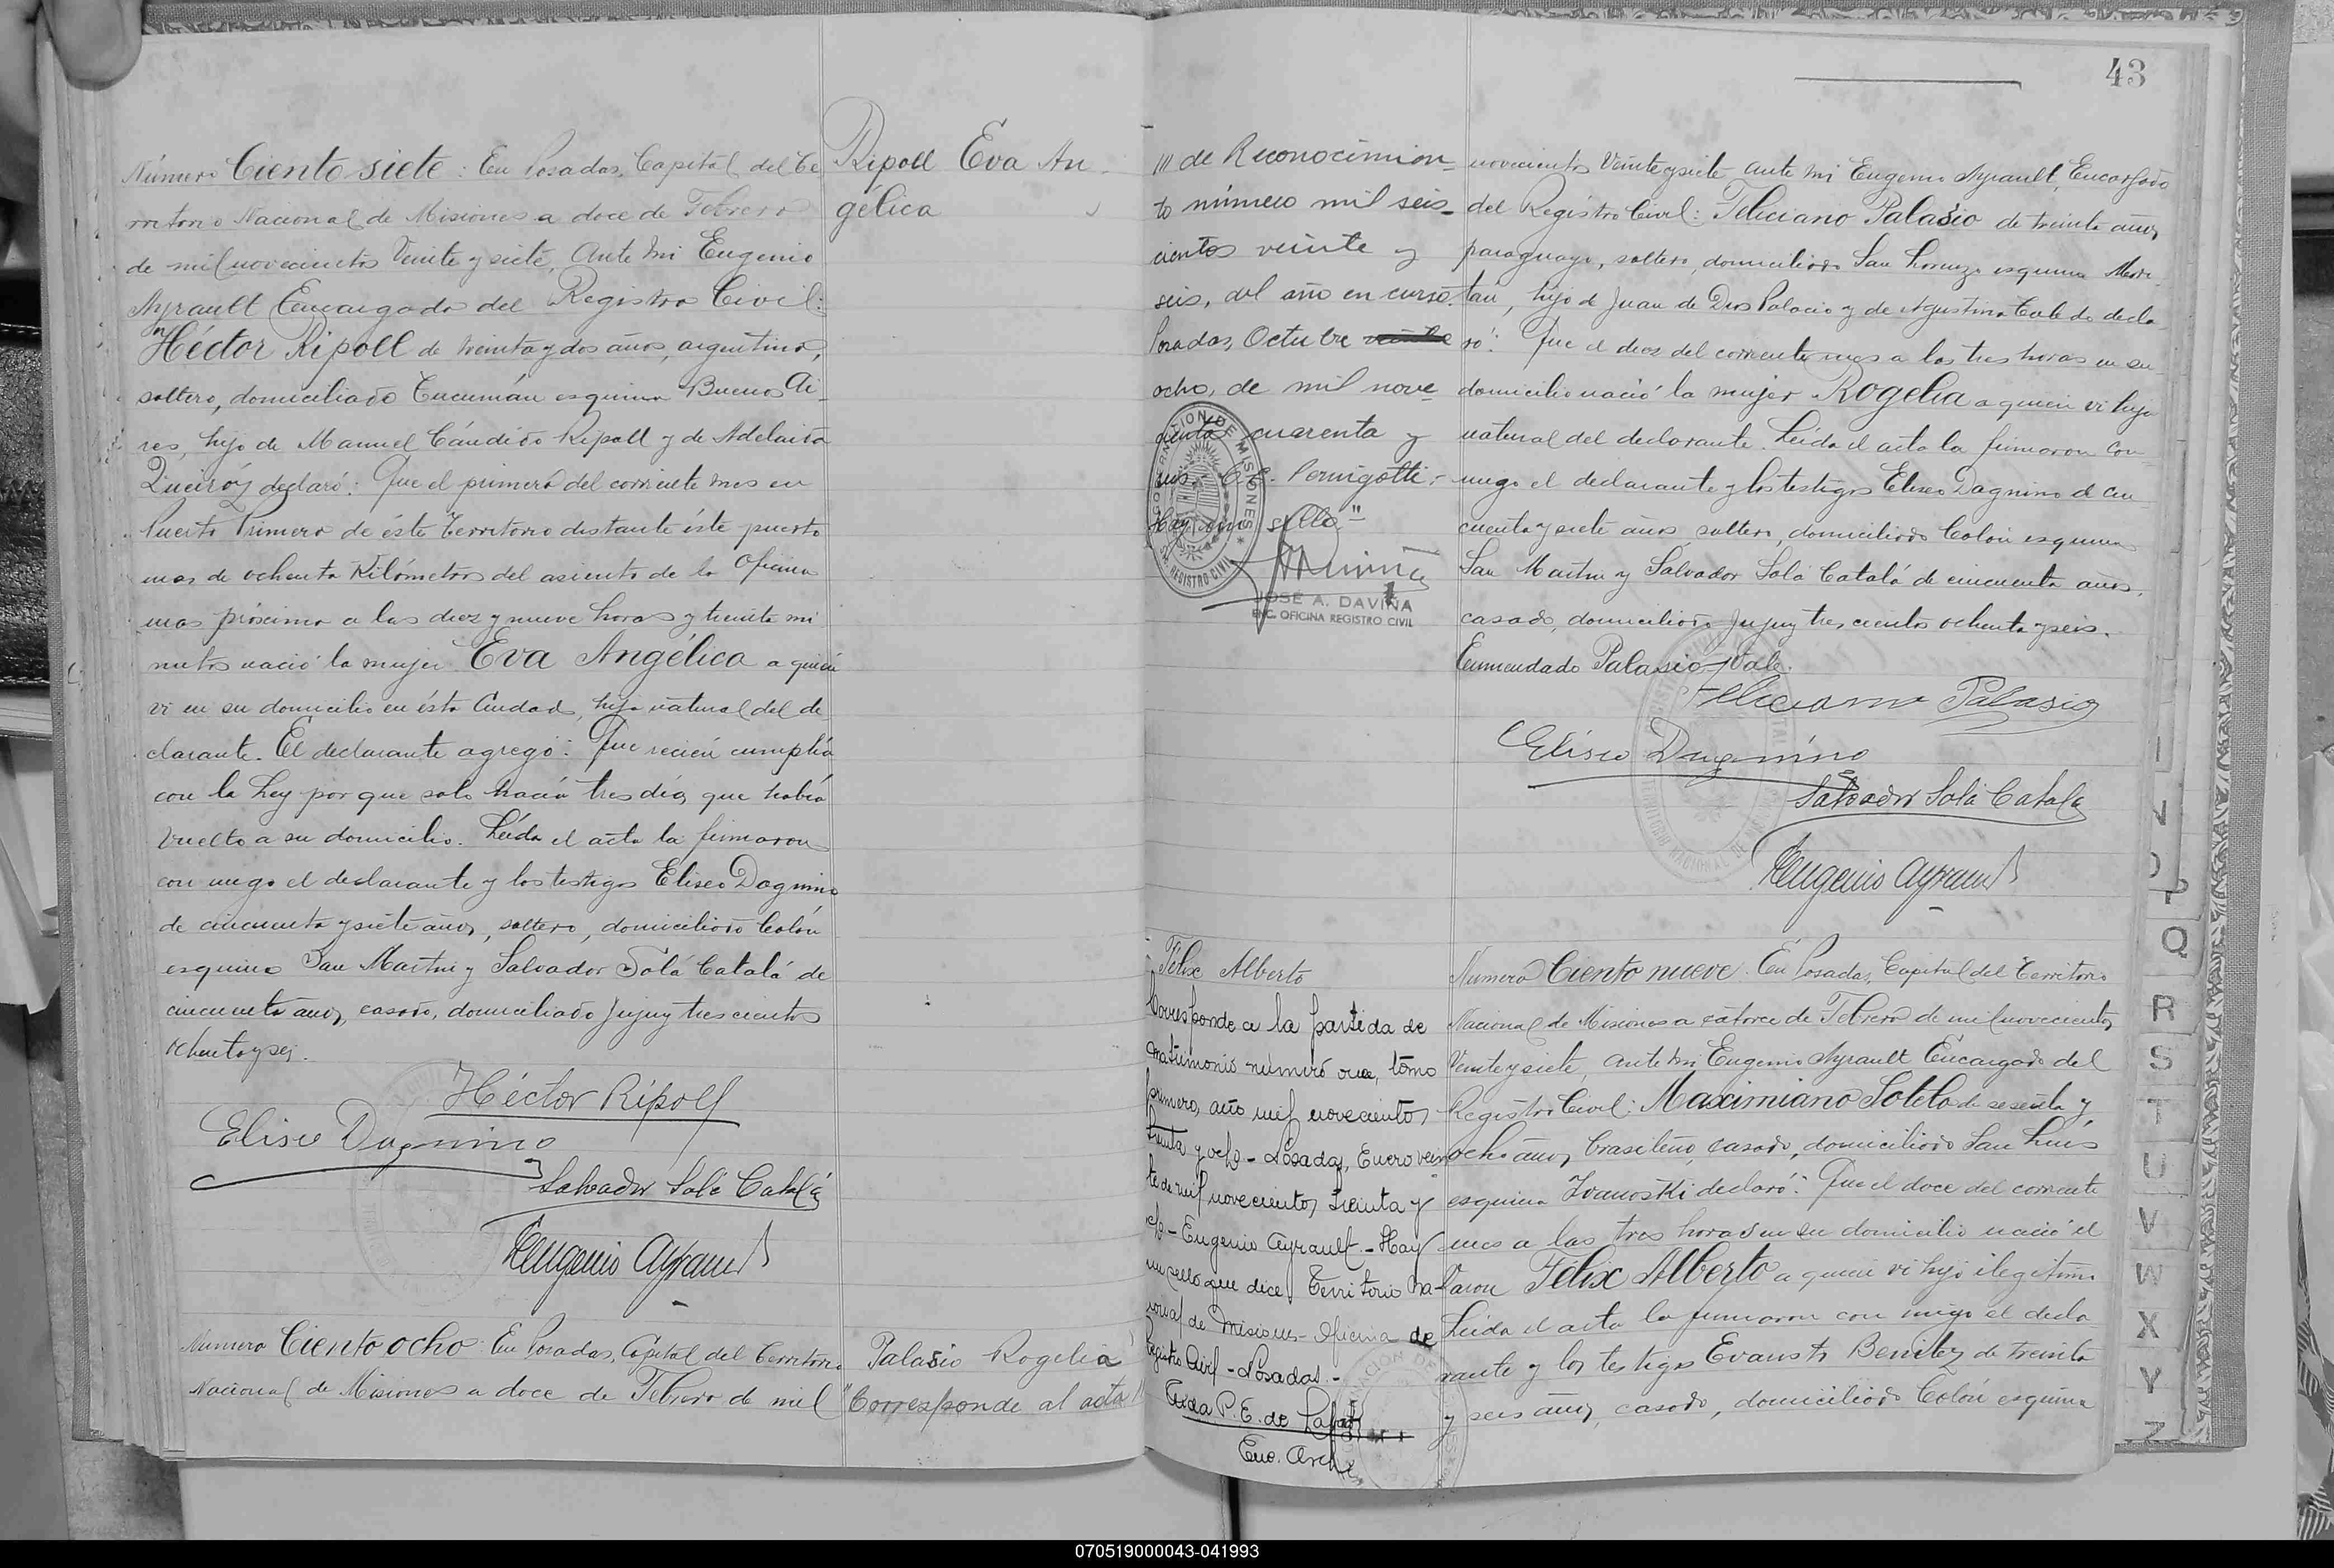 Número Ciento siete: En Posadas, Capital del Te
rritorio Nacional de Misiones a doce de Febrero
de mil novecientos Veinte y siete, Ante mi Eugenio
Ayrault Encargado del Registro Civil:
Héctor Ripoll de treinta y dos años, argentino,
soltero, domiciliado Tucumán esquina Buenos Ai
res, hijo de Manuel Cándido Ripoll y de Adelaida
Queiróz declaró: Que el primero del corriente mes en
Puerto Primero de éste Territorio distante éste puerto
mas de ochenta Kilómetros del asiento de la Oficina
mas próxima a las diez y nueve horas y treinta mi
nutos nació la mujer Eva Angélica a quien
vi en su domicilio en ésta Ciudad, hija natural del de
clarante. El declarante agregó: Que recien cumplía
con la Ley por que solo hacia tres días que había
vuelto a su domicilio. Leída el acta la firmaron
con migo el declarante y los testigos Eliseo Dagnino
de cincuenta y siete años, soltero, domiciliado Colón
esquina San Martin y Salvador Solá Catalá de
cincuenta años, casado, domiciliado Jujuy tres cientos
ochenta y seis.
Héctor Ripoll
Eliseo Dagnino
Salvador Solá Catalá
Eugenio Ayrault
Ripoll Eva An-
gélica
Número Ciento ocho: En Posadas, Capital del Territorio
Nacional de Misiones a doce de Febrero de mil
Palasio Rogelia
"Corresponde al acta
43
/// de Reconocimien-
to número mil seis-
cientos veinte y
seis, del año en curso.
Posadas, Octubre
ocho, de mil nove
cientos cuarenta y
seis. C.E. Pernigotti.-
Hay un sello"
GOBERNACION DE MISIONES
REGISTRO CIVIL
JOSÉ A. DAVIÑA
ENC. OFICINA REGISTRO CIVIL
novecientos Veinte y siete ante mi Eugenio Ayrault, Encargado
del Registro Civil: Feliciano Palasio de treinta años,
paraguayo, soltero, domiciliado San Lorenzo esquina
hijo de Juan de Dios Palacio y de Agustina Toledo decla
ró: Que el diez del corriente mes a las tres horas en su
domicilio nació la mujer Rogelia a quien vi hija
natural del declarante. Leída el acta la firmaron con
migo el declarante y los testigos Eliseo Dagnino de cin
cuenta y siete años, soltero, domiciliado Colón esquina
San Martin y Salvador Solá Catalá de cincuenta años,
casado, domiciliado Jujuy tres cientos ochenta y seis.
Enmendado Palasio Vale.
Feliciano Palasio
Eliseo Dagnino
Salvador Solá Catalá
Eugenio Ayrault
Félix Alberto
Corresponde a la partida de
matrimonio número once, tomo
primero, año mil novecientos
treinta y ocho - Posadas, Enero vein
te de mil novecientos treinta y
ocho - Eugenio Ayrault - Hay
un sello que dice Territorio Na-
cional de Misiones - Oficina de
Registro Civil - Posadas.-
Aida P. E. de
Enc. Arch.
Número Ciento nueve. En Posadas, Capital del Territorio
Nacional de Misiones a catorce de Febrero de mil novecientos
Veinte y siete, ante mi Eugenio Ayrault Encargado del
Registro Civil: Maximiano Sotelo de sesenta y
ocho años, brasileño, casado, domiciliado San Luis
esquina Ivanoski declaró: Que el doce del corriente
mes a las tres horas en su domicilio nació el
Varon Félix Alberto a quien vi hijo ilegítimo
Leída el acta la firmaron con migo el decla
rante y los testigos Evaristo Benitez de treinta
y seis años, casado, domiciliado Colón esquina
P
Q
R
S
T
U
V
W
X
Y
Z
070519000043-041993